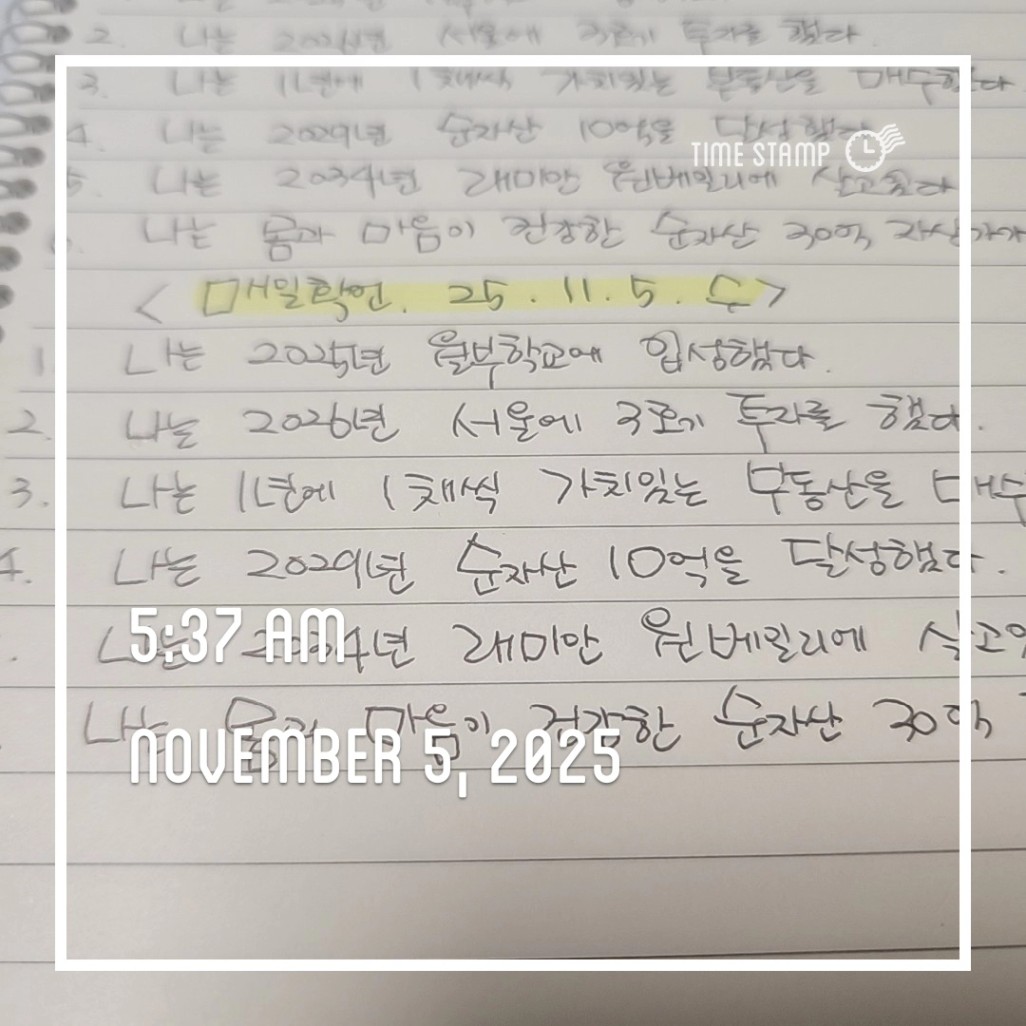 2. 나는 2026년 서울에 3호기 투자를 했다.
3. 나는 1년에 1채씩 가치있는 부동산을 매수한다
4. 나는 2029년 순자산 10억을 달성했다
TIME STAMP
5. 나는 2034년 래미안 원베일리에 살고있다
나는 몸과 마음이 건강한 순자산 30억 자산가가
< 매일확언. 25. 11. 5. 수>
1. 나는 2025년 월부학교에 입성했다.
2. 나는 2026년 서울에 3호기 투자를 했다.
3. 나는 1년에 1채씩 가치있는 부동산을 매수
4. 나는 2029년 순자산 10억을 달성했다.
나는 2034년 래미안 원베일리에 살고
5:37 AM
나는 몸과 마음이 건강한 순자산 30억
NOVEMBER 5, 2025